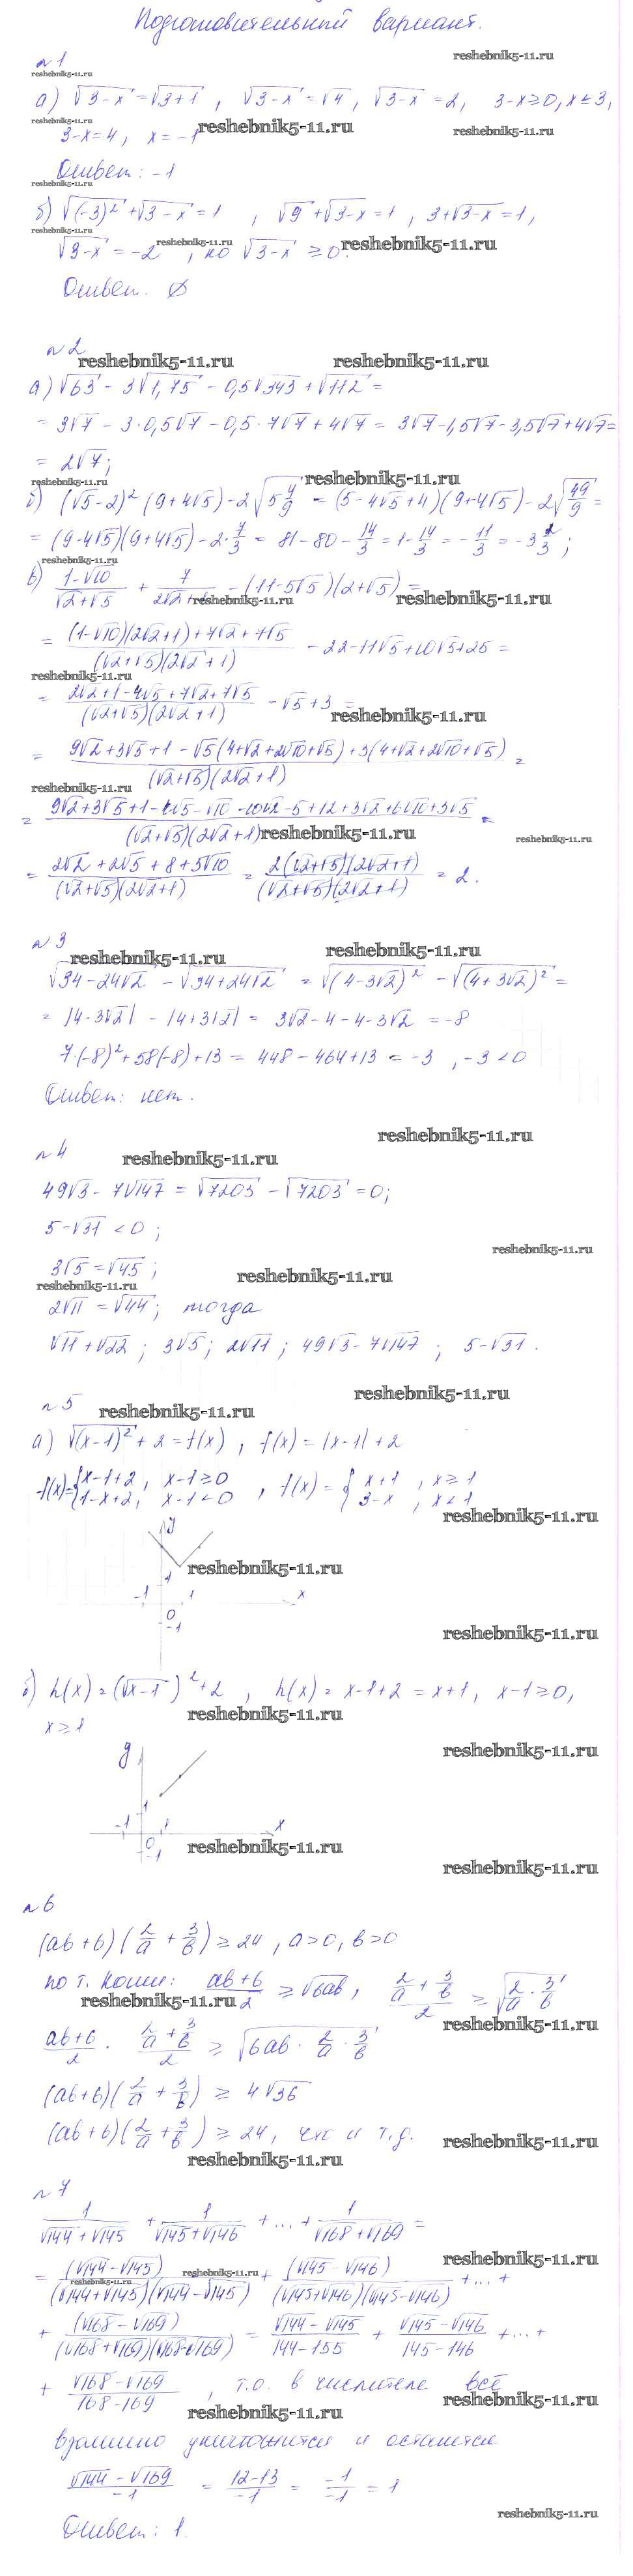 Подготовительный вариант.
reshebnik5-11.ru
n 1
reshebnik5-11.ru
а) √3-x = √3+1 , √3-x = √4 , √3-x = 2, 3-x≥0, x≤3,
reshebnik5-11.ru
3-x=4, x=-1 reshebnik5-11.ru reshebnik5-11.ru
Ответ: -1
reshebnik5-11.ru
б) √(-3)² + √3-x = 1 , √9 + √3-x = 1 , 3+√3-x = 1,
reshebnik5-11.ru
√3-x = -2 reshebnik5-11.ru , но √3-x ≥ 0. reshebnik5-11.ru
Ответ. ∅
n 2
reshebnik5-11.ru reshebnik5-11.ru
а) √63 - 3√1,75 - 0,5√343 + √112 =
= 3√7 - 3·0,5√7 - 0,5·7√7 + 4√7 = 3√7-1,5√7-3,5√7+4√7=
= 2√7;
reshebnik5-11.ru reshebnik5-11.ru
б) (√5-2)² (9+4√5) - 2√5 4/9 = (5-4√5+4)(9+4√5) - 2√49/9 =
= (9-4√5)(9+4√5) - 2·7/3 = 81-80-14/3 = 1-14/3 = -11/3 = -3 2/3;
reshebnik5-11.ru
в) 1-√10/√2+√5 + 7/2√2+1 - (11-5√5)(2+√5) =
reshebnik5-11.ru reshebnik5-11.ru
= (1-√10)(2√2+1)+7√2+7√5/(√2+√5)(2√2+1) -22-11√5+10√5+25 =
reshebnik5-11.ru
= 2√2+1-4√5+7√2+7√5/(√2+√5)(2√2+1) -√5+3 =
reshebnik5-11.ru
= 9√2+3√5+1-√5(4+√2+2√10+√5)+3(4+√2+2√10+√5)/(√2+√5)(2√2+1) =
reshebnik5-11.ru
= 9√2+3√5+1-4√5-√10-10√2-5+12+3√2+6√10+3√5/(√2+√5)(2√2+1) =
reshebnik5-11.ru reshebnik5-11.ru
= 2√2+2√5+8+5√10/(√2+√5)(2√2+1) = 2(√2+√5)(2√2+1)/(√2+√5)(2√2+1) = 2.
n 3
reshebnik5-11.ru reshebnik5-11.ru
√34-24√2 - √34+24√2 = √(4-3√2)² - √(4+3√2)² =
= |4-3√2| - |4+3√2| = 3√2-4-4-3√2 = -8
7·(-8)²+58(-8)+13 = 448-464+13 = -3 , -3<0
Ответ: нет.
reshebnik5-11.ru
n 4
reshebnik5-11.ru
49√3-7√147 = √7203 - √7203 = 0;
5-√31 < 0 ;
reshebnik5-11.ru
3√5 = √45 ; reshebnik5-11.ru
reshebnik5-11.ru
2√11 = √44 ; тогда
√11+√22 ; 3√5; 2√11 ; 49√3-7√147 ; 5-√31 .
reshebnik5-11.ru
n 5
reshebnik5-11.ru
а) √(x-1)² + 2 = f(x) , f(x) = |x-1| + 2
f(x)={x-1+2, x-1≥0 , f(x)={ x+1 , x≥1
1-x+2, x-1<0 3-x , x<1
reshebnik5-11.ru
y
reshebnik5-11.ru
1
-1 1 x
0
-1
reshebnik5-11.ru
б) h(x) = (√x-1)²+2 , h(x) = x-1+2 = x+1, x-1≥0,
reshebnik5-11.ru
x≥1
y reshebnik5-11.ru
1
-1 1 x
0 reshebnik5-11.ru
-1
reshebnik5-11.ru
n 6
(ab+6)(2/a + 3/b) ≥ 24 , a>0, b>0
по т. Коши: ab+6/2 ≥ √6ab, 2/a + 3/b/2 ≥ √2/a · 3/b
reshebnik5-11.ru
reshebnik5-11.ru
ab+6/2 · 2/a + 3/b/2 ≥ √6ab · 2/a · 3/b
(ab+6)(2/a + 3/b) ≥ 4√36
(ab+6)(2/a + 3/b) ≥ 24, ч и т.д.
reshebnik5-11.ru
reshebnik5-11.ru
n 7
1/√144+√145 + 1/√145+√146 + ... + 1/√168+√169 =
reshebnik5-11.ru
= (√144-√145)/(√144+√145)(√144-√145) + (√145-√146)/(√145+√146)(√145-√146) + ... +
reshebnik5-11.ru reshebnik5-11.ru
+ (√168-√169)/(√168+√169)(√168-√169) = √144-√145/144-155 + √145-√146/145-146 + ... +
+ √168-√169/168-169 , т.о. в числителе всё
reshebnik5-11.ru
reshebnik5-11.ru
взаимно уничтожится и останется
√144-√169/-1 = 12-13/-1 = -1/-1 = 1
reshebnik5-11.ru
Ответ: 1.